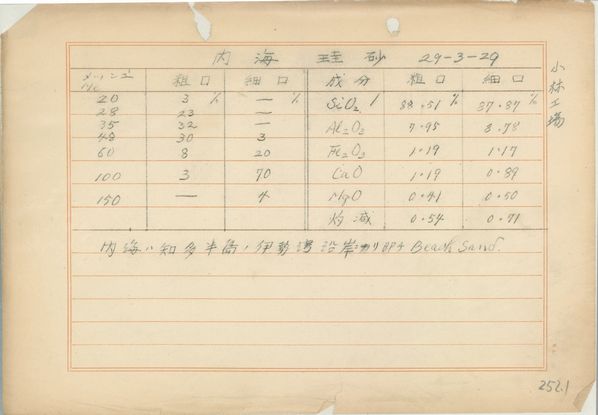 内海 珪砂 29-3-29
小林工場
メーッシュ No. 粗口 細口 成分 粗口 細口
20 3 % — % SiO2 88.51 % 87.87 %
28 23 —
35 32 — Al2O3 7.95 8.78
48 30 3
60 8 20 Fe2O3 1.19 1.17
100 3 70 CaO 1.19 0.89
150 — 4 MgO 0.41 0.50
灼減 0.54 0.71
内海ハ知多半島ノ伊勢湾沿岸 即チ Beach Sand.
252.1